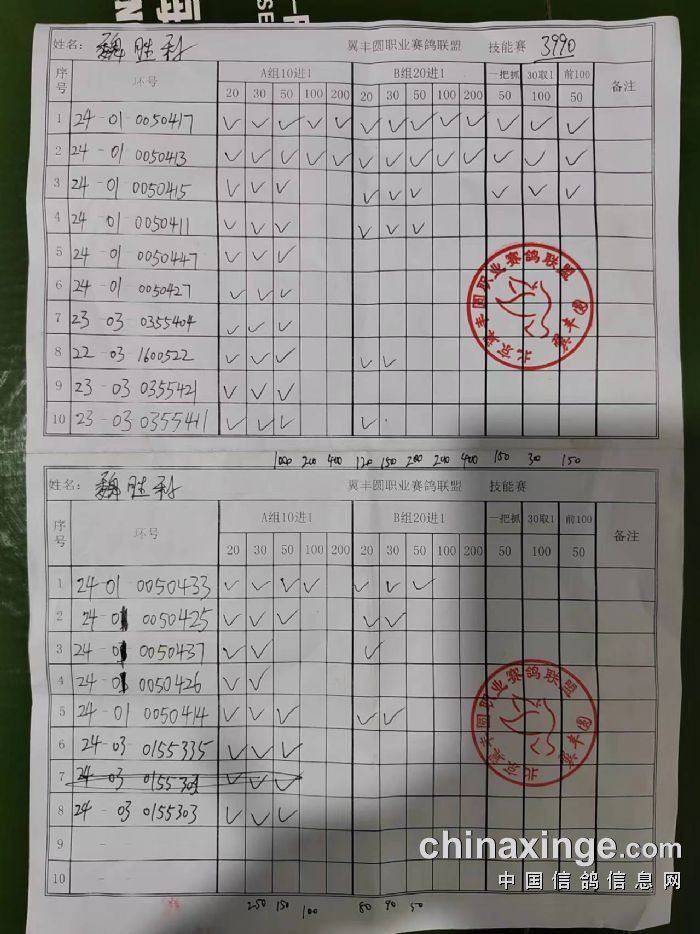 姓名: 魏胜利 翼丰圆职业赛鸽联盟 技能赛 3990
序号 环号 A组10进1 B组20进1 一把抓 30取1 前100 备注
20 30 50 100 200 20 30 50 100 200 50 100 50
1 24-01 0050417 ✓ ✓ ✓ ✓ ✓ ✓ ✓ ✓ ✓ ✓ ✓ ✓ ✓
2 24-01 0050413 ✓ ✓ ✓ ✓ ✓ ✓ ✓ ✓ ✓ ✓ ✓ ✓ ✓
3 24-01 0050415 ✓ ✓ ✓ ✓ ✓ ✓ ✓ ✓ ✓
4 24-01 0050411 ✓ ✓ ✓ ✓ ✓ ✓
5 24-01 0050447 ✓ ✓ ✓
6 24-01 0050427 ✓ ✓ ✓
7 23-03 0355404 ✓ ✓ ✓
8 22-03-1600522 ✓ ✓ ✓ ✓ ✓
9 23-03 0355421 ✓ ✓ ✓
10 23-03 0355411 ✓ ✓ ✓ ✓
北京翼丰圆职业赛鸽联盟
赛丰圆
200 400 120 150 200 200 400 150 30 150
姓名: 魏胜利 翼丰圆职业赛鸽联盟 技能赛
序号 环号 A组10进1 B组20进1 一把抓 30取1 前100 备注
20 30 50 100 200 20 30 50 100 200 50 100 50
1 24-01 0050433 ✓ ✓ ✓ ✓ ✓ ✓ ✓
2 24-01 0050425 ✓ ✓ ✓ ✓ ✓
3 24-01 0050437 ✓ ✓ ✓
4 24-01 0050426 ✓ ✓
5 24-01 0050414 ✓ ✓ ✓ ✓ ✓
6 24-03 0155335 ✓ ✓ ✓
7 24-03 ✓ ✓ ✓
8 24-03 0155303 ✓ ✓ ✓
9 - -
10 - -
北京翼丰圆职业赛鸽联盟
赛丰圆
250 150 100 80 90 50
chinaxinge.com
中国信鸽信息网